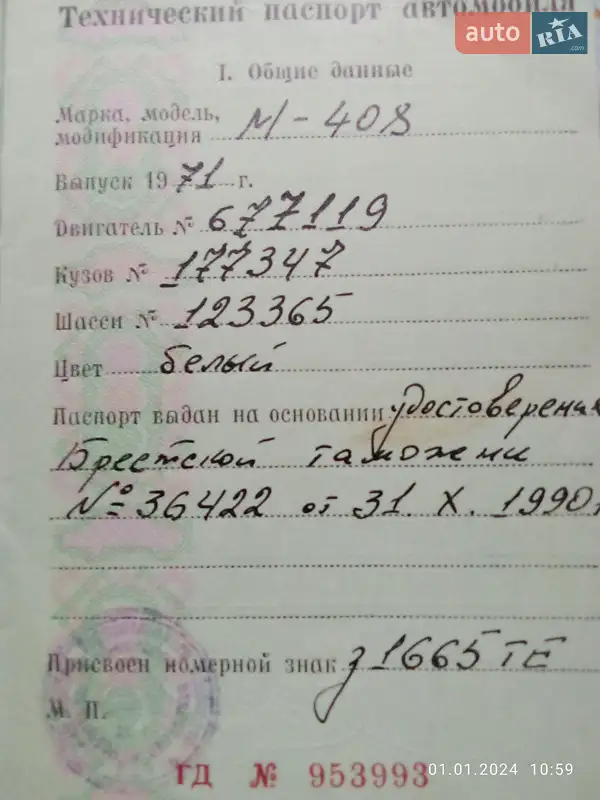 Технический паспорт автомобиля
auto RIA.com
I. Общие данные
Марка, модель,
модификация М-408
Выпуск 1971 г.
Двигатель № 677119
Кузов № 177347
Шасси № 123365
Цвет белый
Паспорт выдан на основании удостоверения
Брестской таможни
№ 36422 от 31. X. 1990г
Присвоен номерной знак з1665ТЕ
М. П.
ГД № 953993
01.01.2024 10:59